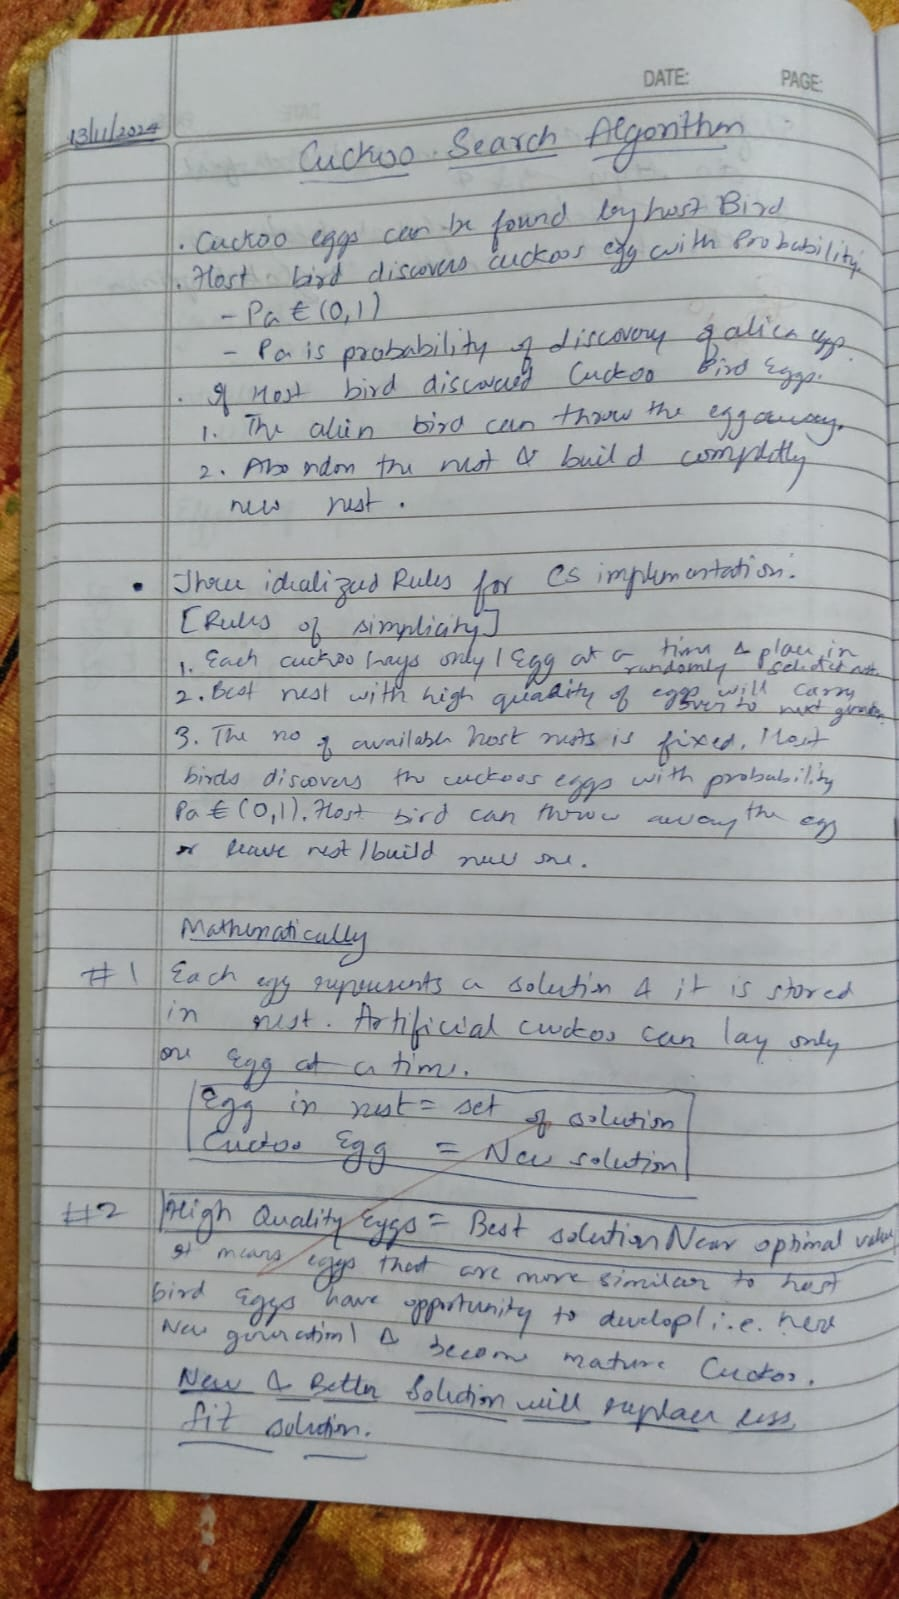 DATE: PAGE:
13/11/2024
Cuckoo Search Algorithm
. Cuckoo eggs can be found by host Bird
. Host bird discovers cuckoos egg with Probability.
- Pa € (0,1)
- Pa is probability of discovery of alien egg.
. If Host bird discovered Cuckoo Bird Eggs.
1. The alien bird can throw the egg away.
2. Abo ndon the nest & build completly
new nest.
• Three idealized Rules for CS implementation.
[Rules of simplicity]
1. Each cuckoo lays only 1 Egg at a time & place in
randomly selected nest.
2. Best nest with high quality of eggs will carry
over to next generation
3. The no of available host nests is fixed. Host
birds discovers the cuckoos eggs with probability
Pa € (0,1). Host bird can throw away the egg
or leave nest / build new one.
Mathematically
#1 Each egg represents a solution & it is stored
in nest. Artificial cuckoo can lay only
one Egg at a time.
Egg in nest = set of solution
Cuckoo Egg = New solution
#2 High Quality Eggs = Best solution Near optimal value
It means eggs that are more similar to host
bird Eggs have opportunity to develop (i.e. next
New generation) & become mature Cuckoo.
New & Better Solution will replace less
fit solution.